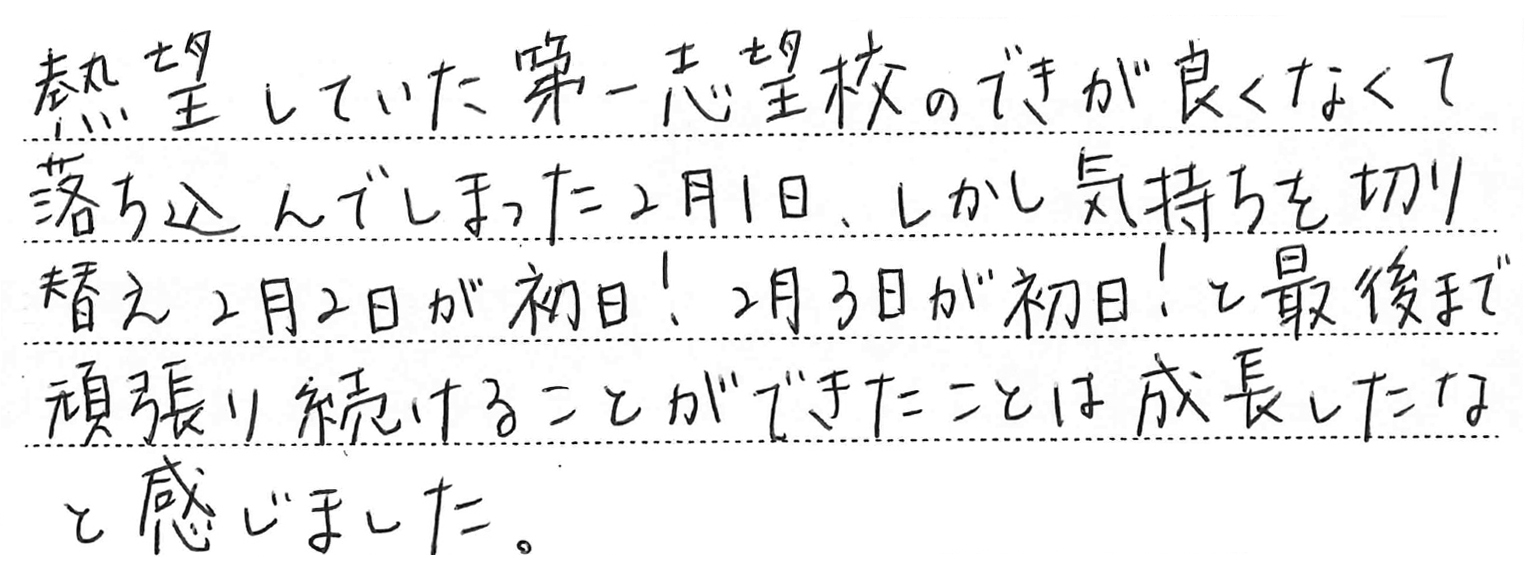 熱望していた第一志望校のできが良くなくて
落ち込んでしまった2月1日、しかし気持ちを切り
替え2月2日が初日!2月3日が初日!と最後まで
頑張り続けることができたことは成長したな
と感じました。